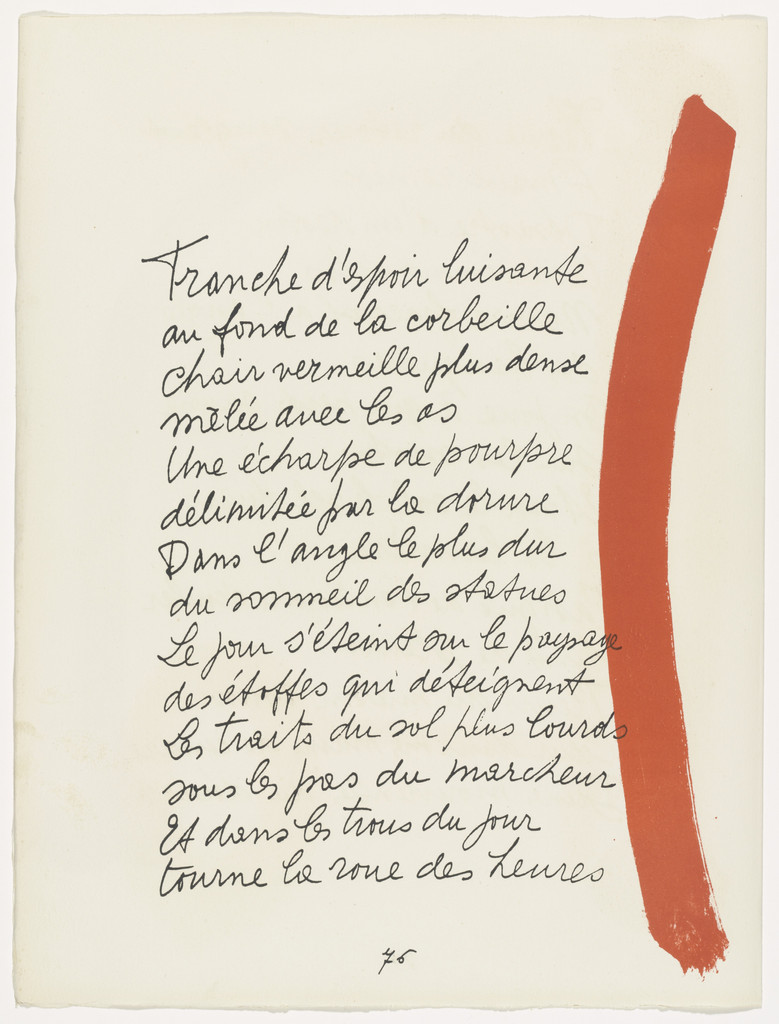 Tranche d'espoir luisante
au fond de la corbeille
Chair vermeille plus dense
mêlée avec les os
Une écharpe de pourpre
délimitée par la dorure
Dans l'angle le plus dur
du sommeil des statues
Le jour s'éteint sur le paysage
des étoffes qui déteignent
Les traits du sol plus lourds
sous les pas du marcheur
Et dans les trous du jour
tourne la roue des heures
76